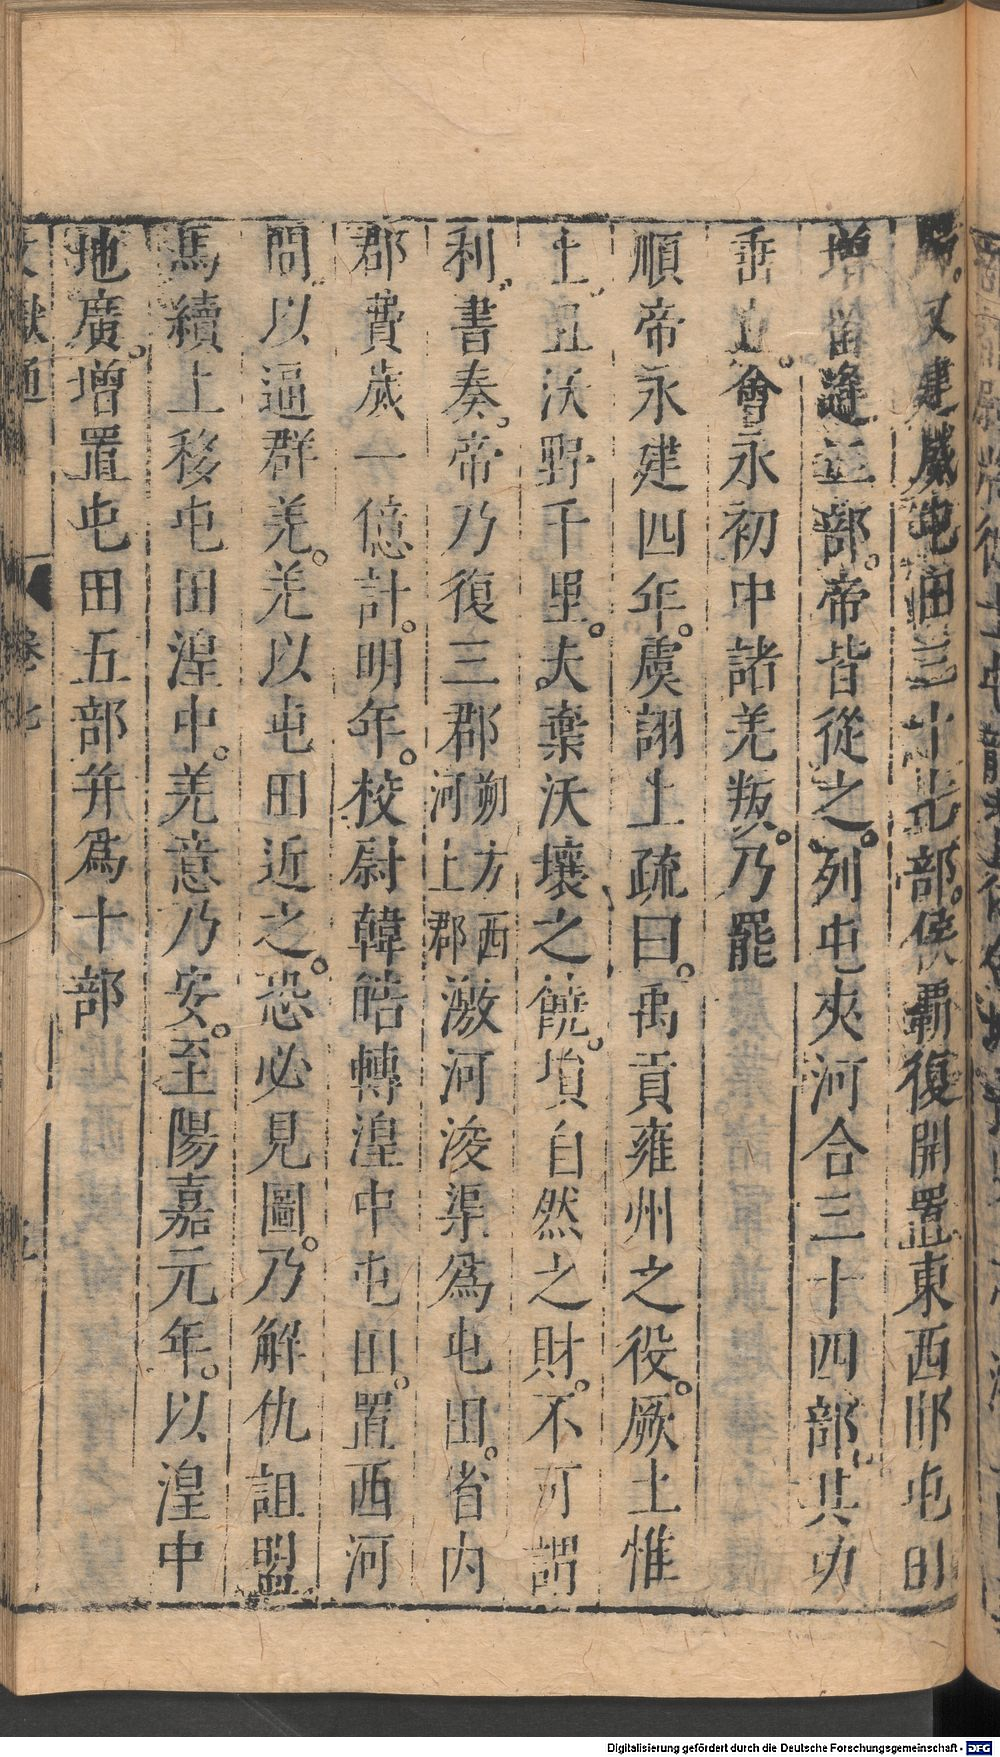 陽。又建威屯田二十七部。侯霸復開置東西邯屯田
增留逢二部。帝皆從之。列屯夾河合三十四部。其功
垂立。會永初中諸羌叛。乃罷
順帝永建四年。虞詡上疏曰。禹貢雍州之役。厥土惟
上。且沃野千里。夫棄沃壤之饒。損自然之財。不可謂
利。書奏。帝乃復三郡朔方西河上郡激河浚渠爲屯田。省內
郡費歲一億計。明年。校尉韓皓轉湟中屯田。置西河
間。以逼群羌。羌以屯田近之。恐必見圖。乃解仇詛盟
馬續上移屯田湟中。羌意乃安。至陽嘉元年。以湟中
地廣。增置屯田五部并爲十部
文獻通 卷七
Digitalisierung gefördert durch die Deutsche Forschungsgemeinschaft - DFG